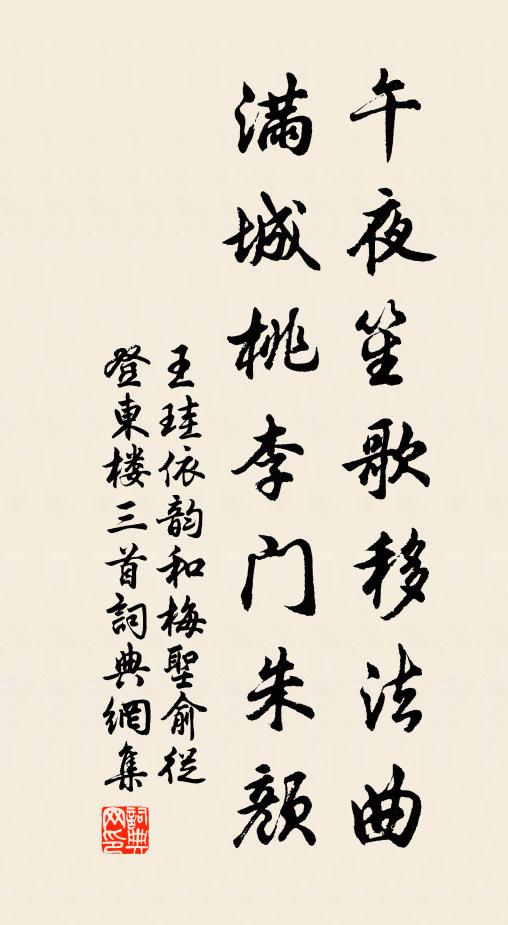 午夜笙歌移法曲
满城桃李门朱颜
王珪依韵和梅聖俞從
登東楼三首詞典網集
詞典
网印